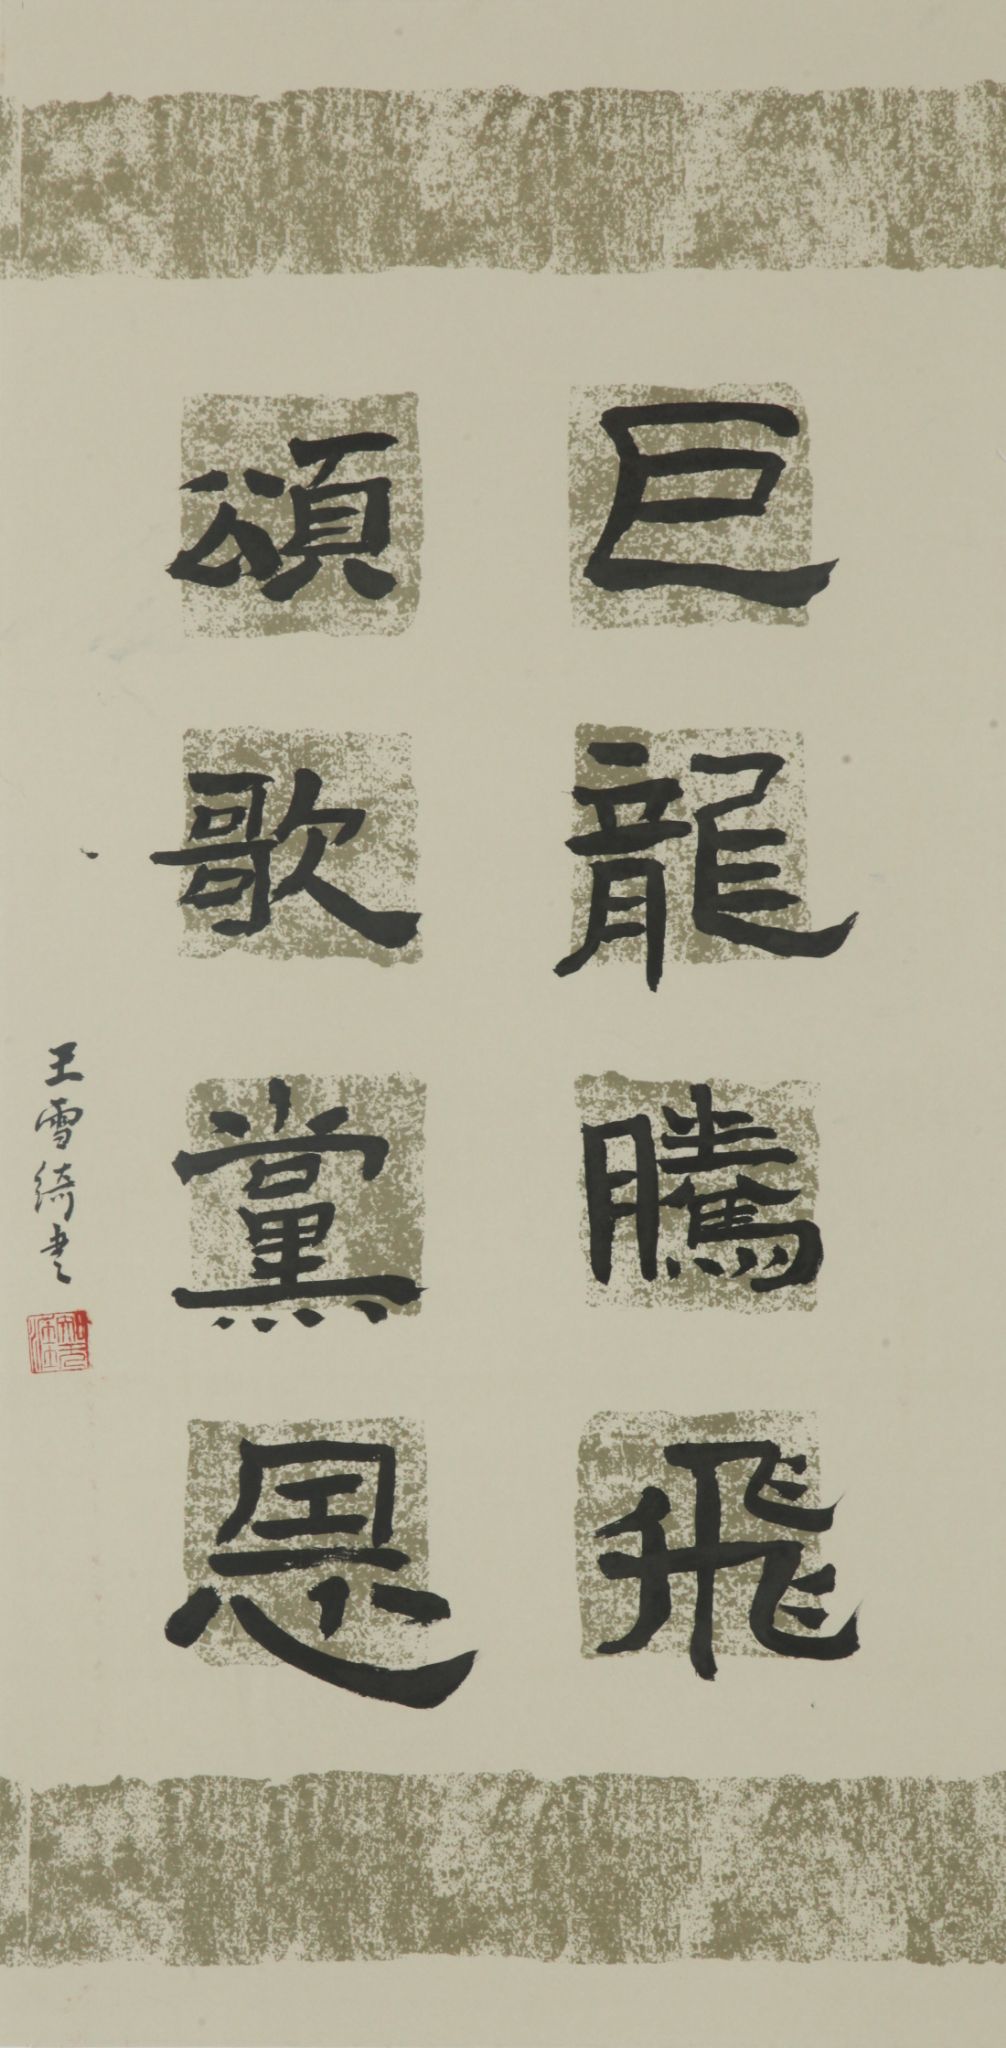 巨龍騰飛
頌歌黨恩
王雪綺書